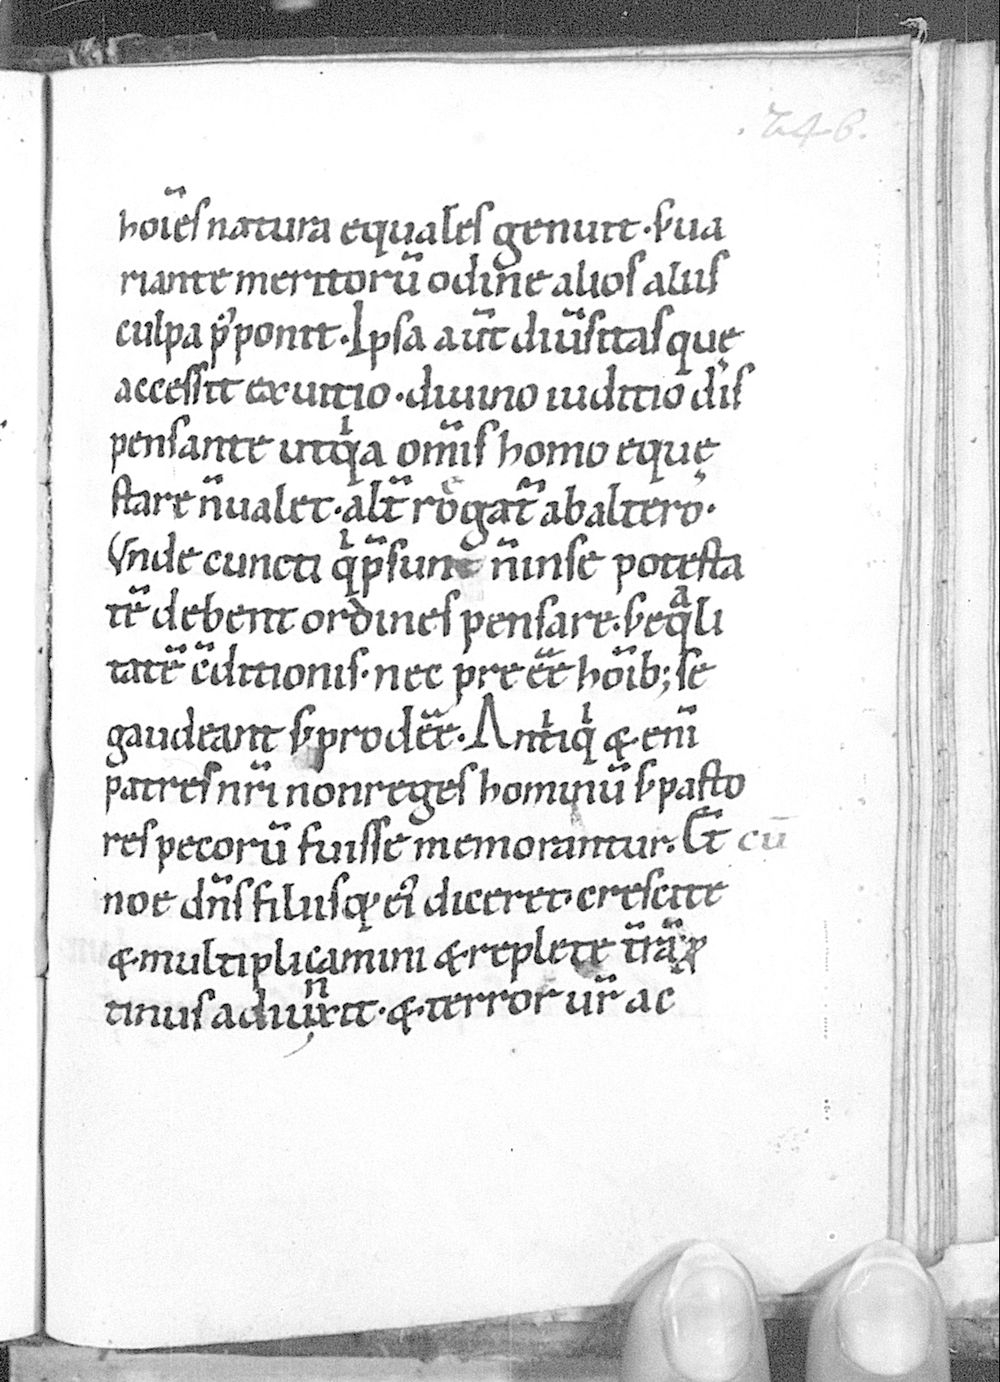 .246.
hoīes natura equales genuit · s; ua
riante meritorū odine alios aliis
culpa p̄ponit · Ipsa aūt diūsitas quę
accessit ex uitio · diuino iuditio dis
pensante utqͥa om̄is homo equę
stare n̄ ualet · alt̄ rogat̄ ab altero ·
Vnde cuncti qͥ p̄sunt n̄ in se potesta
tē debent ordines pensare · s; eqᵃli
tatē c̄ditionis · nec pre eē̄ hōib; se
gaudeant s; prodeē̄ · Antiqͥ & eni̅
patres nr̄i non reges hominū s; pasto
res pecorū fuisse memorantur · Et cū
noe dn̄s filiisq; ei᾿ diceret · crescite
& multiplicamini & replete t̄rā p
tinus adiunxit · & terror ur̄ ac